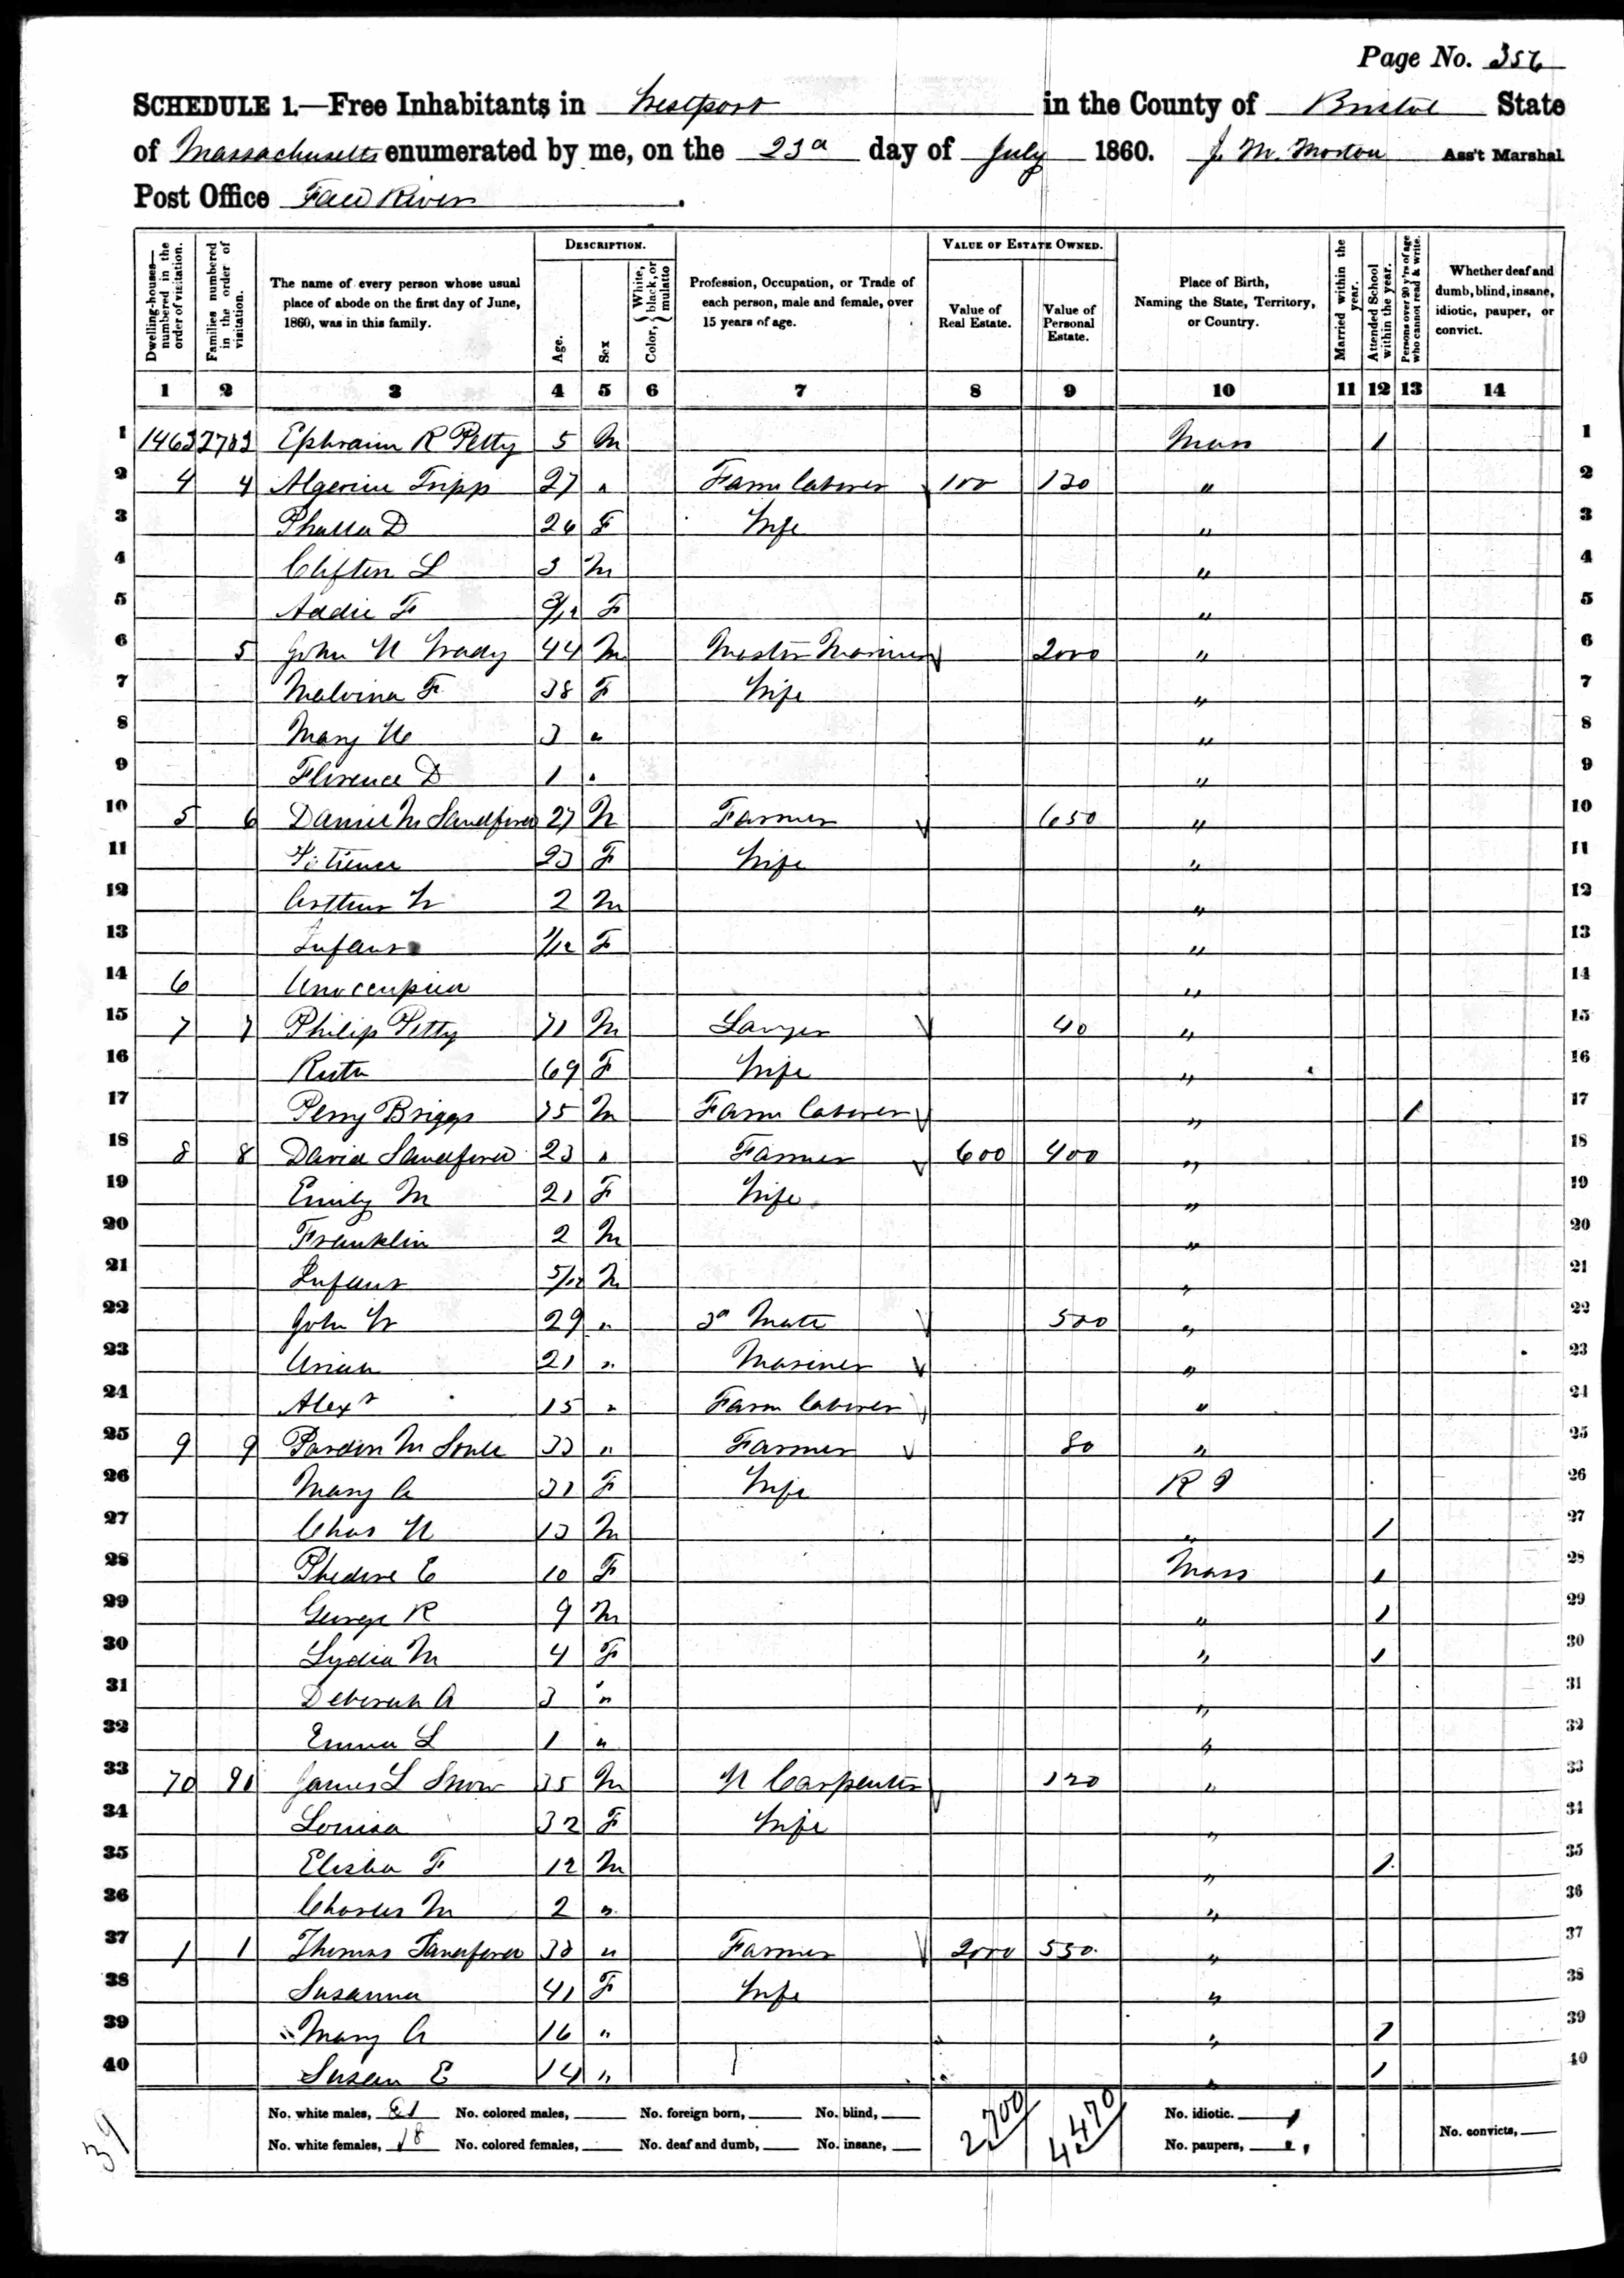 Page No. 356
SCHEDULE 1.—Free Inhabitants in Westport in the County of Bristol State
of Massachusetts enumerated by me, on the 23d day of July 1860. J. M. Morton Ass't Marshal
Post Office Fall River.
Dwelling-houses—numbered in the order of visitation. Families numbered in the order of visitation. The name of every person whose usual place of abode on the first day of June, 1860, was in this family. DESCRIPTION. Age. Sex Color, {White, black, or mulatto Profession, Occupation, or Trade of each person, male and female, over 15 years of age. VALUE OF ESTATE OWNED. Value of Real Estate. Value of Personal Estate. Place of Birth, Naming the State, Territory, or Country. Married within the year. Attended School within the year. Persons over 20 y'rs of age who cannot read & write. Whether deaf and dumb, blind, insane, idiotic, pauper, or convict.
1 2 3 4 5 6 7 8 9 10 11 12 13 14
1 1463 2703 Ephraim R Petty 5 M Mass 1 1
2 4 4 Algerine Tripp 27 " Farm laborer 100 130 " 2
3 D 26 F Wife " 3
4 Clifton L 3 M " 4
5 Addie F 9/12 F " 5
6 5 John H 44 M Master Mariner 2000 " 6
7 Malvina F 38 F Wife " 7
8 Mary 3 " " 8
9 Florence D 1 " " 9
10 5 6 Daniel M Sandford 27 M Farmer 650 " 10
11 23 F Wife " 11
12 Arthur W 2 M " 12
13 Infant 1/12 F " 13
14 6 Unoccupied " 14
15 7 7 Philip Petty 71 M 40 " 15
16 Ruth 69 F Wife " 16
17 Perry Briggs 35 M Farm laborer " 1 17
18 8 8 David Sandford 23 " Farmer 600 400 " 18
19 Emily M 21 F Wife " 19
20 Franklin 2 M " 20
21 Infant 5/12 M " 21
22 John W 29 " 3d Mate 500 " 22
23 Uriah 21 " Mariner " 23
24 Alexr 15 " Farm laborer " 24
25 9 9 Pardon M Soule 33 " Farmer 80 " 25
26 Mary A 31 F Wife R I 26
27 Chas H 13 M " 1 27
28 E 10 F Mass 1 28
29 George R 9 M " 1 29
30 Lydia M 4 F " 1 30
31 Deborah A 3 " " 31
32 Emma L 1 " " 32
33 70 90 James L Snow 35 M H Carpenter 120 " 33
34 Louisa 32 F Wife " 34
35 Elisha F 12 M " 1 35
36 Charles M 2 " " 36
37 1 1 Thomas Sandford 38 " Farmer 2000 550 " 37
38 Susanna 41 F Wife " 38
39 Mary A 16 " " 1 39
40 Susan E 14 " " 1 40
No. white males, 21 No. colored males, No. foreign born, No. blind, 2,700 4,470 No. idiotic. No. convicts,
No. white females, 18 No. colored females, No. deaf and dumb, No. insane, No. paupers,
39